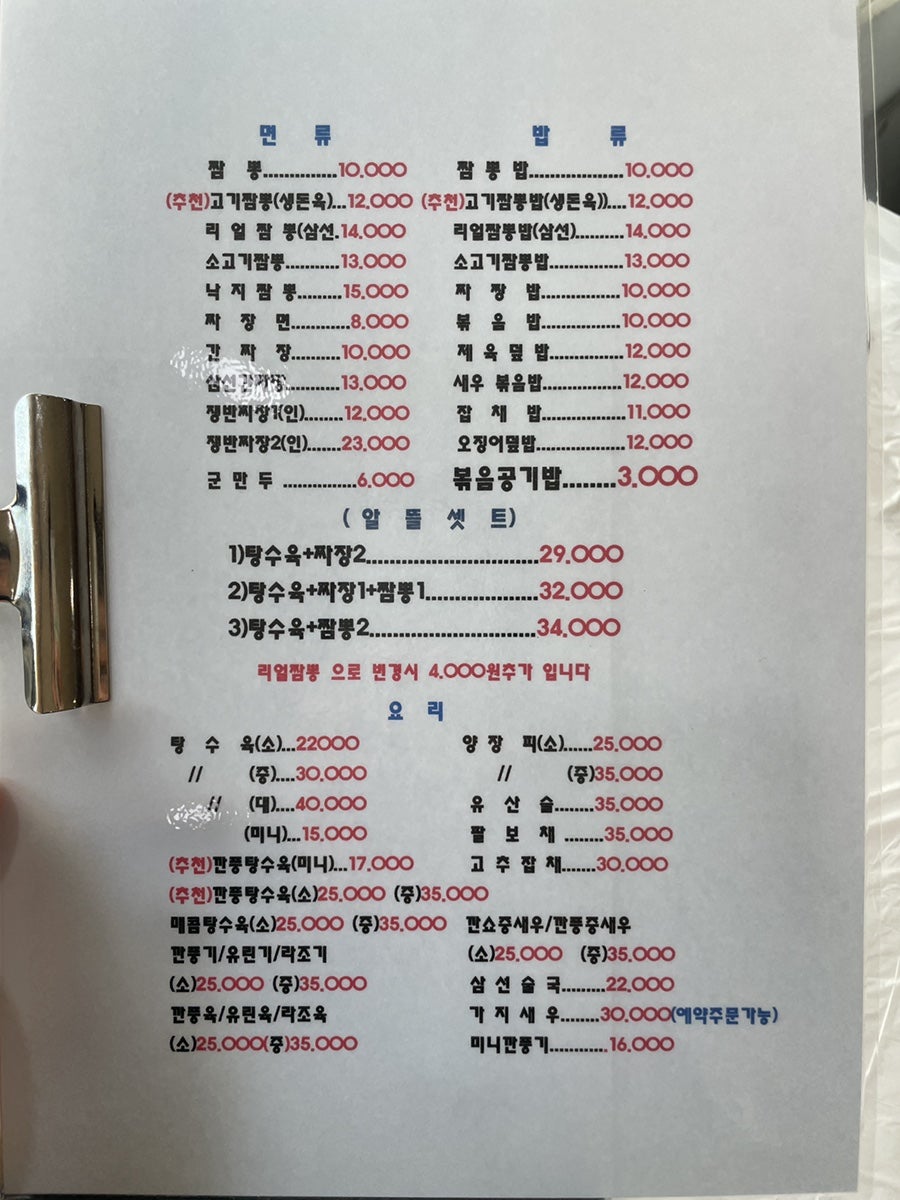 면 류
짬 뽕..............10.000
(추천)고기짬뽕(생돈육)...12.000
리 얼 짬 뽕(삼선.14.000
소고기짬뽕...........13.000
낙 지 짬 뽕.........15.000
짜 장 면............8.000
간 짜 장..........10.000
삼선간짜장...........13.000
쟁반짜장1(인)........12.000
쟁반짜장2(인).......23.000
군 만 두 ...............6.000
밥 류
짬 뽕 밥..................10.000
(추천)고기짬뽕밥(생돈육))....12.000
리얼짬뽕밥(삼선)..........14.000
소고기짬뽕밥..............13.000
짜 장 밥...............10.000
볶 음 밥...............10.000
제 육 덮 밥..............12.000
새우 볶음밥...............12.000
잡 채 밥...............11.000
오징어덮밥.................12.000
볶음공기밥........3.000
( 알 뜰 셋 트)
1)탕수육+짜장2...............................29.000
2)탕수육+짜장1+짬뽕1....................32.000
3)탕수육+짬뽕2..............................34.000
리얼짬뽕 으로 변경시 4.000원추가 입니다
요 리
탕 수 육(소)...22000
// (중)....30.000
// (대)....40.000
(미니)...15.000
(추천)깐풍탕수육(미니)...17.000
(추천)깐풍탕수육(소)25.000 (중)35.000
매콤탕수육(소)25.000 (중)35.000
깐풍기/유린기/라조기
(소)25.000 (중)35.000
깐풍육/유린육/라조육
(소)25.000(중)35.000
양 장 피(소)......25.000
// (중)35.000
유 산 슬........35.000
팔 보 채 ........35.000
고 추 잡 채.......30.000
깐쇼중새우/깐풍중새우
(소)25.000 (중)35.000
삼 선 술 국.........22.000
가 지 새 우........30.000(예약주문가능)
미니깐풍기............16.000